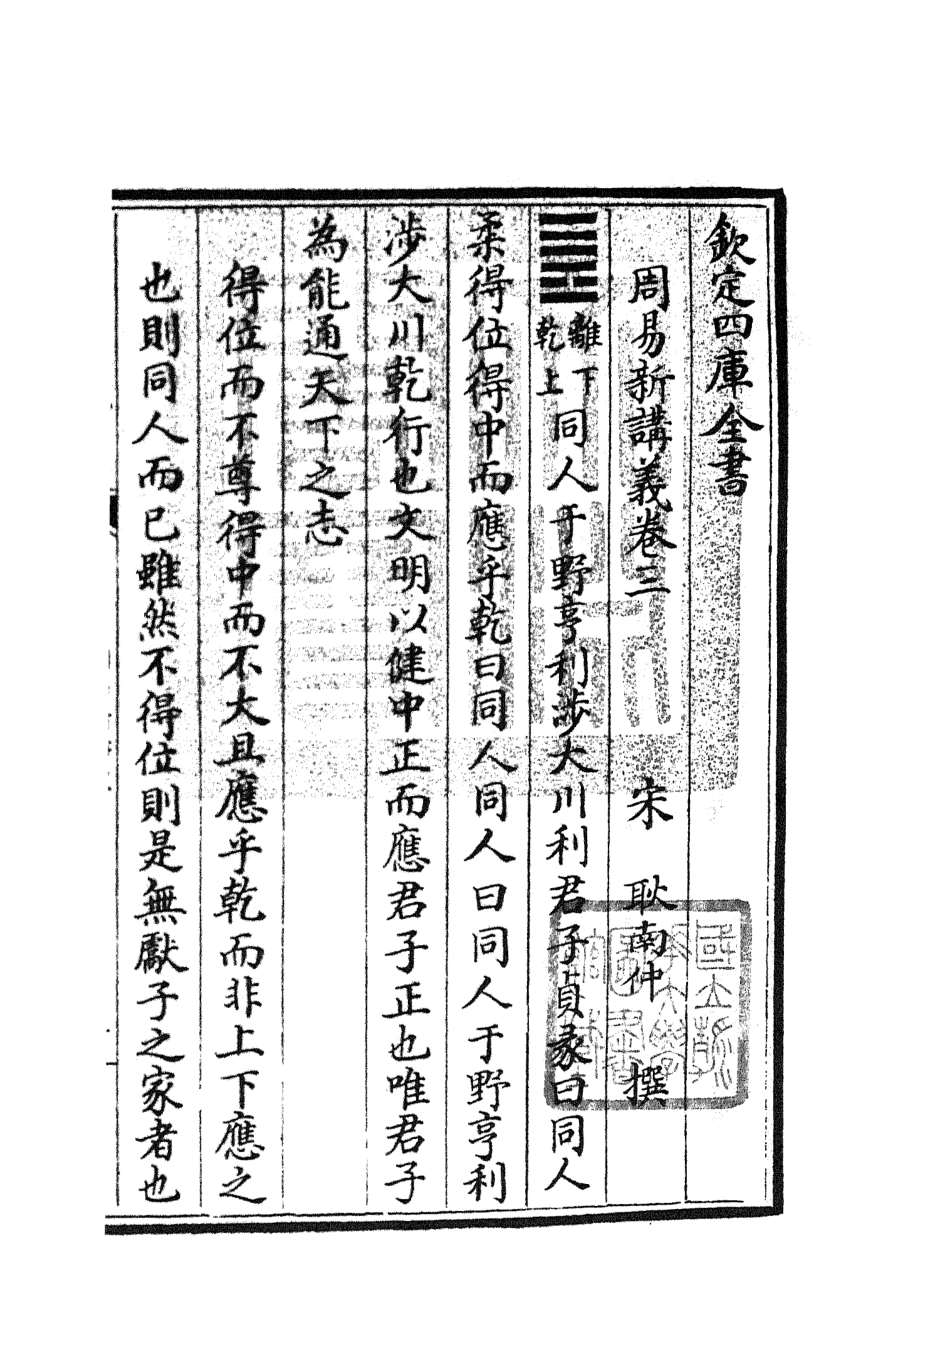 欽定四庫全書
周易新講義卷三　宋　耿南仲　撰
䷌離下乾上同人于野亨利涉大川利君子貞彖曰同人
柔得位得中而應乎乾曰同人同人曰同人于野亨利
涉大川乾行也文明以健中正而應君子正也唯君子
為能通天下之志
得位而不尊得中而不大且應乎乾而非上下應之
也則同人而已雖然不得位則是無獻子之家者也